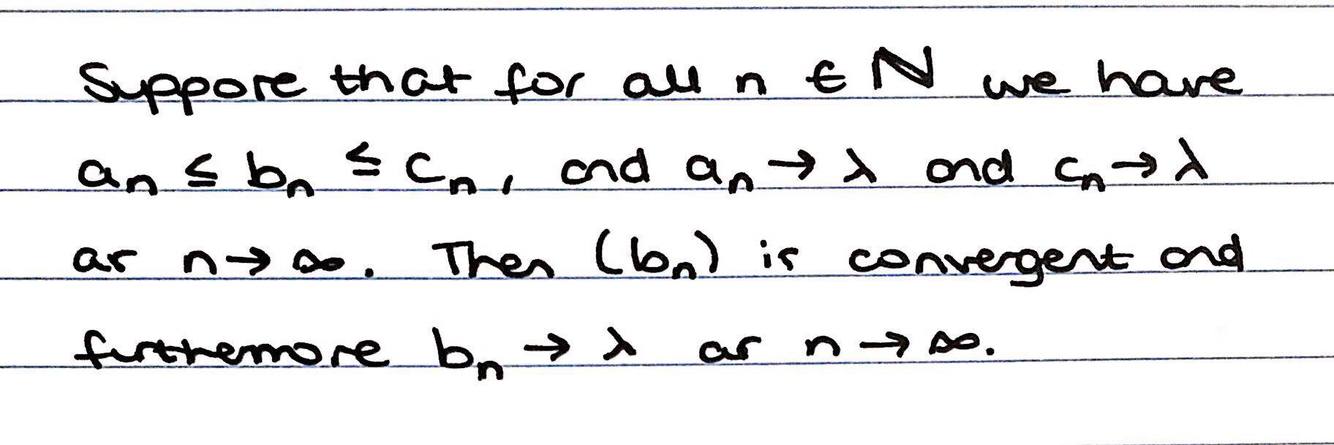 Suppose that for all n ∈ ℕ we have
aₙ ≤ bₙ ≤ cₙ, and aₙ → λ and cₙ → λ
as n → ∞. Then (bₙ) is convergent and
furthemore bₙ → λ as n → ∞.